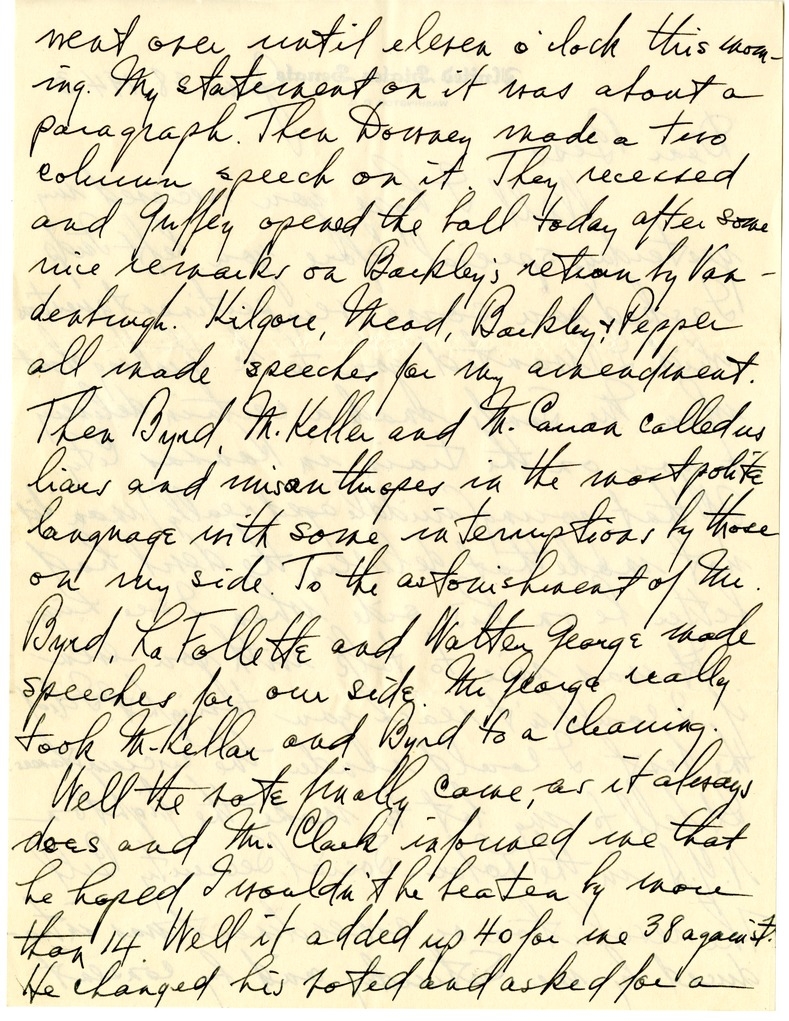 went over until eleven o'clock this morn-
ing. My statement on it was about a
paragraph. Then Downey made a two
column speech on it. They recessed
and Guffey opened the ball today after some
nice remarks on Barkley's return by Van-
denburgh. Kilgore, Mead, Barkley & Pepper
all made speeches for my amendment.
Then Byrd, McKeller and McCarran called us
liars and misanthropes in the most polite
language with some interruptions by those
on my side. To the astonishment of Mr.
Byrd, La Follette and Walter George made
speeches for our side. Mr George really
took McKellar and Byrd to a cleaning.
Well the vote finally came, as it always
does and Mr. Clark informed me that
he hoped I wouldn't be beaten by more
than 14. Well it added up 40 for me 38 against.
He changed his voted and asked for a